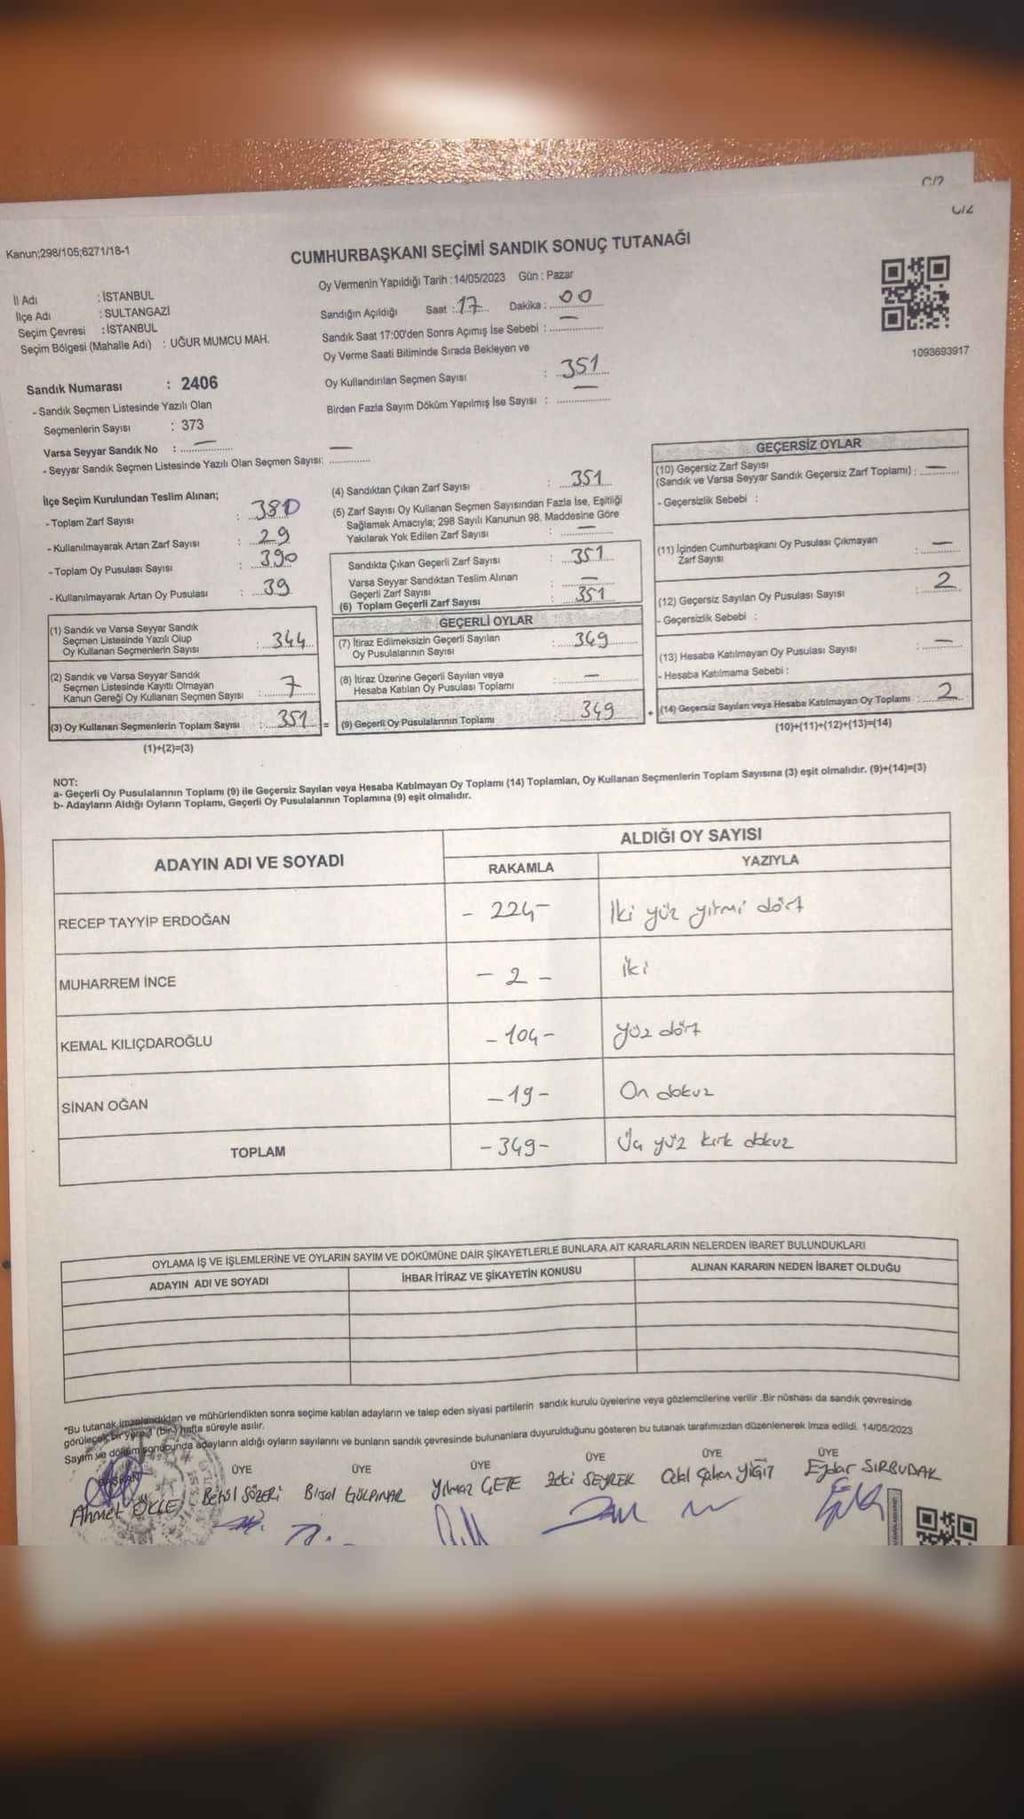 C/2
C/2
Kanun;298/105;6271/18-1
CUMHURBAŞKANI SEÇİMİ SANDIK SONUÇ TUTANAĞI
Oy Vermenin Yapıldığı Tarih :14/05/2023 Gün : Pazar
İl Adı : İSTANBUL
İlçe Adı : SULTANGAZİ
Seçim Çevresi : İSTANBUL
Seçim Bölgesi (Mahalle Adı) : UĞUR MUMCU MAH.
Sandığın Açıldığı Saat : 17 Dakika : 00
Sandık Saat 17:00'den Sonra Açımış İse Sebebi : —
Oy Verme Saati Bitiminde Sırada Bekleyen ve
Oy Kullandırılan Seçmen Sayısı : 351
Birden Fazla Sayım Döküm Yapılmış İse Sayısı : —
1093693917
Sandık Numarası : 2406
- Sandık Seçmen Listesinde Yazılı Olan
Seçmenlerin Sayısı : 373
Varsa Seyyar Sandık No : —
- Seyyar Sandık Seçmen Listesinde Yazılı Olan Seçmen Sayısı: —
İlçe Seçim Kurulundan Teslim Alınan;
- Toplam Zarf Sayısı : 380
- Kullanılmayarak Artan Zarf Sayısı : 29
- Toplam Oy Pusulası Sayısı : 390
- Kullanılmayarak Artan Oy Pusulası : 39
(1) Sandık ve Varsa Seyyar Sandık
Seçmen Listesinde Yazılı Olup
Oy Kullanan Seçmenlerin Sayısı : 344
(2) Sandık ve Varsa Seyyar Sandık
Seçmen Listesinde Kayıtlı Olmayan
Kanun Gereği Oy Kullanan Seçmen Sayısı : 7
(3) Oy Kullanan Seçmenlerin Toplam Sayısı : 351 =
(1)+(2)=(3)
(4) Sandıktan Çıkan Zarf Sayısı : 351
(5) Zarf Sayısı Oy Kullanan Seçmen Sayısından Fazla İse, Eşitliği
Sağlamak Amacıyla; 298 Sayılı Kanunun 98. Maddesine Göre
Yakılarak Yok Edilen Zarf Sayısı : —
Sandıkta Çıkan Geçerli Zarf Sayısı : 351
Varsa Seyyar Sandıktan Teslim Alınan
Geçerli Zarf Sayısı : —
(6) Toplam Geçerli Zarf Sayısı : 351
GEÇERLİ OYLAR
(7) İtiraz Edilmeksizin Geçerli Sayılan
Oy Pusulalarının Sayısı : 349
(8) İtiraz Üzerine Geçerli Sayılan veya
Hesaba Katılan Oy Pusulası Toplamı : —
(9) Geçerli Oy Pusulalarının Toplamı : 349 +
GEÇERSİZ OYLAR
(10) Geçersiz Zarf Sayısı
(Sandık ve Varsa Seyyar Sandık Geçersiz Zarf Toplamı) : —
- Geçersizlik Sebebi :
(11) İçinden Cumhurbaşkanı Oy Pusulası Çıkmayan
Zarf Sayısı : —
(12) Geçersiz Sayılan Oy Pusulası Sayısı : 2
- Geçersizlik Sebebi :
(13) Hesaba Katılmayan Oy Pusulası Sayısı : —
- Hesaba Katılmama Sebebi :
(14) Geçersiz Sayılan veya Hesaba Katılmayan Oy Toplamı : 2
(10)+(11)+(12)+(13)=(14)
NOT:
a- Geçerli Oy Pusulalarının Toplamı (9) ile Geçersiz Sayılan veya Hesaba Katılmayan Oy Toplamı (14) Toplamları, Oy Kullanan Seçmenlerin Toplam Sayısına (3) eşit olmalıdır. (9)+(14)=(3)
b- Adayların Aldığı Oyların Toplamı, Geçerli Oy Pusulalarının Toplamına (9) eşit olmalıdır.
ADAYIN ADI VE SOYADI
ALDIĞI OY SAYISI
RAKAMLA YAZIYLA
RECEP TAYYİP ERDOĞAN - 224 - İki yüz yirmi dört
MUHARREM İNCE - 2 - İki
KEMAL KILIÇDAROĞLU - 104 - yüz dört
SİNAN OĞAN - 19 - On dokuz
TOPLAM - 349 - Üç yüz kırk dokuz
OYLAMA İŞ VE İŞLEMLERİNE VE OYLARIN SAYIM VE DÖKÜMÜNE DAİR ŞİKAYETLERLE BUNLARA AİT KARARLARIN NELERDEN İBARET BULUNDUKLARI
ADAYIN ADI VE SOYADI İHBAR İTİRAZ VE ŞİKAYETİN KONUSU ALINAN KARARIN NEDEN İBARET OLDUĞU
*Bu tutanak imzalandıktan ve mühürlendikten sonra seçime katılan adayların ve talep eden siyasi partilerin sandık kurulu üyelerine veya gözlemcilerine verilir .Bir nüshası da sandık çevresinde
görülecek bir yere 1 (bir) hafta süreyle asılır.
Sayım ve döküm sonucunda adayların aldığı oyların sayılarını ve bunların sandık çevresinde bulunanlara duyurulduğunu gösteren bu tutanak tarafımızdan düzenlenerek imza edildi. 14/05/2023
BAŞKAN ÜYE ÜYE ÜYE ÜYE ÜYE ÜYE
Ahmet ÖKLE Betül SÖZERİ Birol GÜLPINAR Yılmaz ÇETE Zeki SEYREK Celal Çahan YİĞİT SIRBUDAK